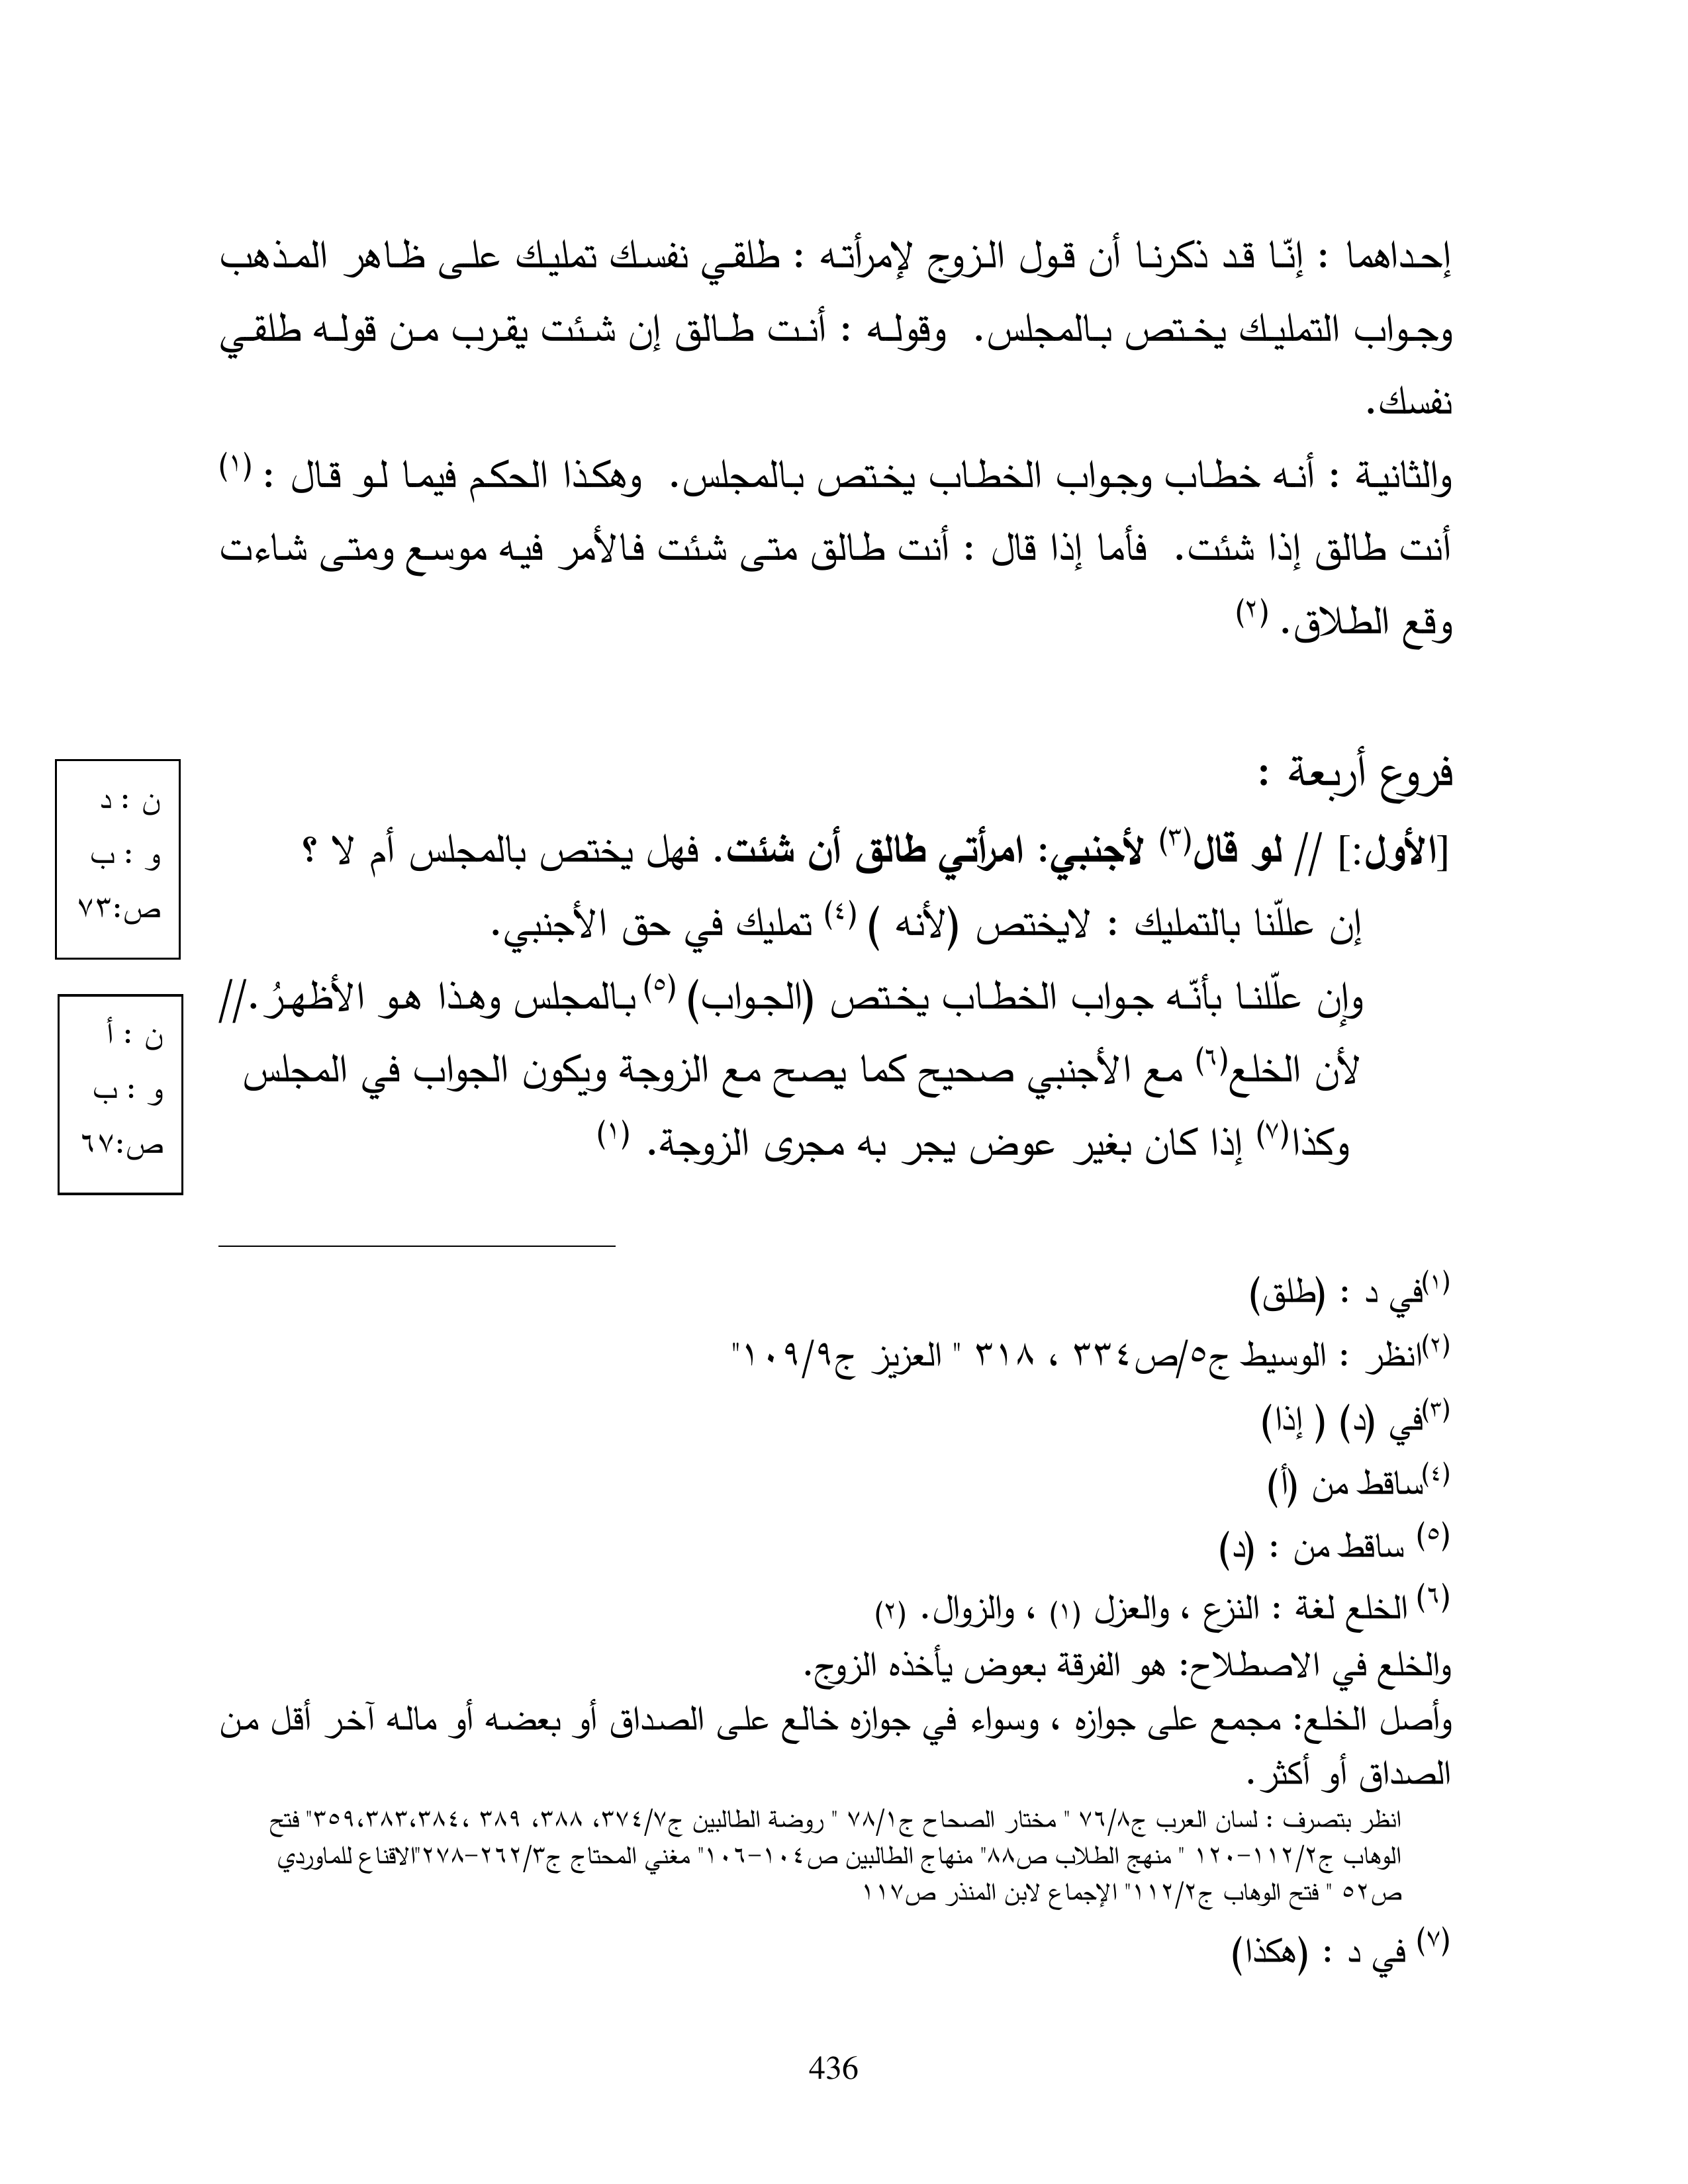 إحداهما : إنّا قد ذكرنا أن قول الزوج لإمرأته : طلقي نفسك تمليك على ظاهر المذهب
وجواب التمليك يختص بالمجلس. وقوله : أنت طالق إن شئت يقرب من قوله طلقي
نفسك.
والثانية : أنه خطاب وجواب الخطاب يختص بالمجلس. وهكذا الحكم فيما لو قال : (١)
أنت طالق إذا شئت. فأما إذا قال : أنت طالق متى شئت فالأمر فيه موسع ومتى شاءت
وقع الطلاق. (٢)
فروع أربعة :
[الأول:] // لو قال(٣) لأجنبي: امرأتي طالق أن شئت. فهل يختص بالمجلس أم لا ؟
إن عللّنا بالتمليك : لايختص (لأنه ) (٤) تمليك في حق الأجنبي.
وإن علّلنا بأنّه جواب الخطاب يختص (الجواب) (٥) بالمجلس وهذا هو الأظهرُ.//
لأن الخلع(٦) مع الأجنبي صحيح كما يصح مع الزوجة ويكون الجواب في المجلس
وكذا(٧) إذا كان بغير عوض يجر به مجرى الزوجة. (١)
ن : د
و : ب
ص:٧٣
ن : أ
و : ب
ص:٦٧
(١)في د : (طلق)
(٢)انظر : الوسيط ج٥/ص٣٣٤ ، ٣١٨ " العزيز ج١٠٩/٩"
(٣)في (د) ( إذا)
(٤)ساقط من (أ)
(٥) ساقط من : (د)
(٦) الخلع لغة : النزع ، والعزل (١) ، والزوال. (٢)
والخلع في الاصطلاح: هو الفرقة بعوض يأخذه الزوج.
وأصل الخلع: مجمع على جوازه ، وسواء في جوازه خالع على الصداق أو بعضه أو ماله آخر أقل من
الصداق أو أكثر.
انظر بتصرف : لسان العرب ج٧٦/٨ " مختار الصحاح ج٧٨/١ " روضة الطالبين ج٣٧٤/٧، ٣٨٨، ٣٨٩ ،٣٥٩،٣٨٣،٣٨٤" فتح
الوهاب ج١١٢/٢-١٢٠ " منهج الطلاب ص٨٨" منهاج الطالبين ص١٠٤-١٠٦" مغني المحتاج ج٢٦٢/٣-٢٧٨"الاقناع للماوردي
ص٥٢ " فتح الوهاب ج١١٢/٢" الإجماع لابن المنذر ص١١٧
(٧) في د : (هكذا)
436